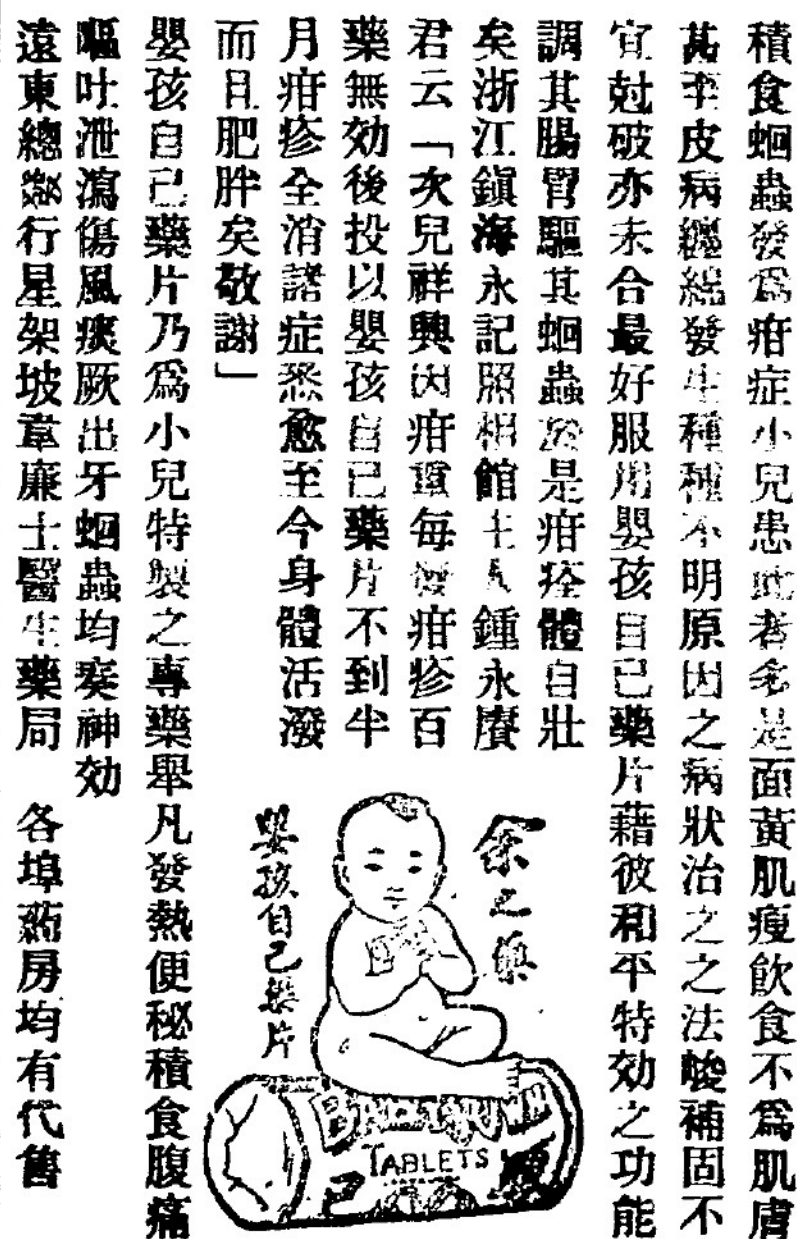 積食蛔蟲發為疳症小兒患此者多是面黃肌瘦飲食不為肌膚
甚至皮病纏綿發生種種不明原因之病狀治之之法峻補固不
宜尅破亦未合最好服用嬰孩自己藥片藉彼和平特効之功能
調其腸胃驅其蛔蟲於是疳痊體自壯
矣浙江鎮海永記照相館主人鍾永賡
君云「次兒祥興因疳重每發疳疹百
藥無効後投以嬰孩自己藥片不到半
月疳疹全消諸症悉愈至今身體活潑
而且肥胖矣敬謝」
余之藥
嬰孩自己藥片
TABLETS
嬰孩自己藥片乃為小兒特製之專藥舉凡發熱便秘積食腹痛
嘔吐泄瀉傷風痰厥出牙蛔蟲均奏神効
遠東總發行星架坡韋廉士醫生藥局 各埠葯房均有代售